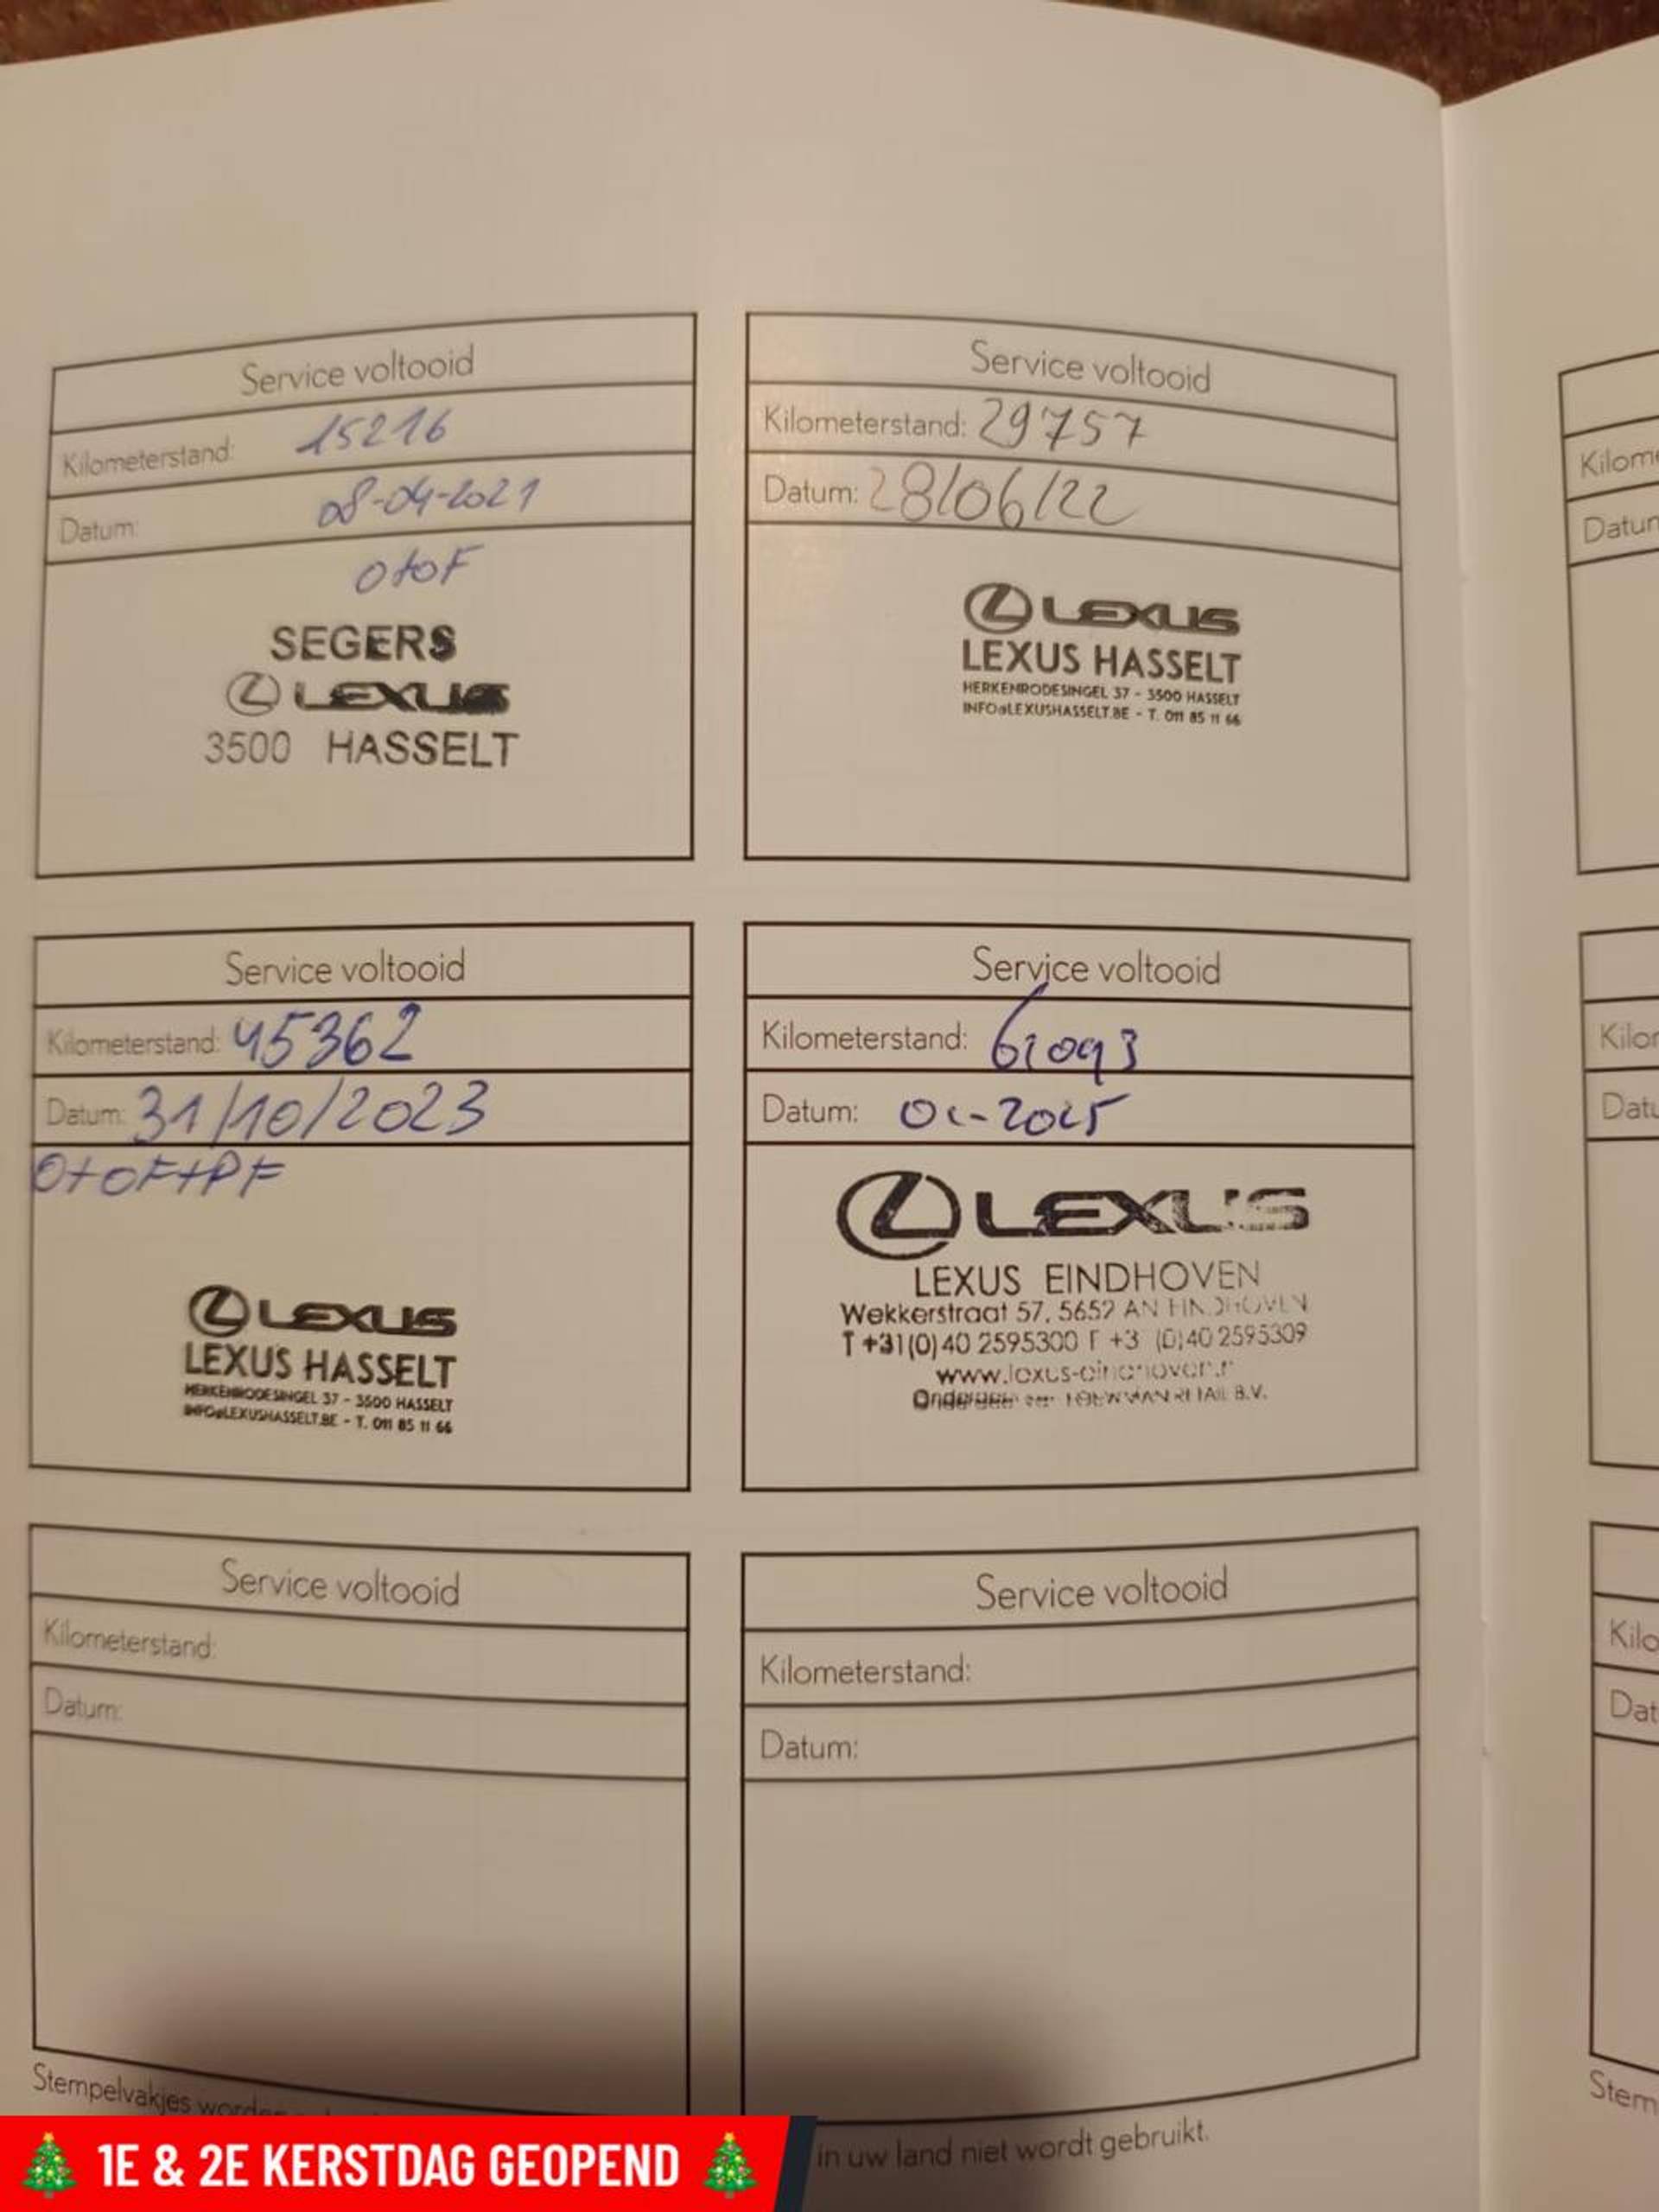 Service voltooid
Kilometerstand: 15216
Datum: 08-04-2021
O+OF
SEGERS
LEXUS
3500 HASSELT
Service voltooid
Kilometerstand: 29757
Datum: 28/06/22
LEXUS
LEXUS HASSELT
HERKENRODESINGEL 37 - 3500 HASSELT
INFO@LEXUSHASSELT.BE - T. 011 85 11 66
Service voltooid
Kilometerstand: 45362
Datum: 31/10/2023
O+OF+PF
LEXUS
LEXUS HASSELT
HERKENRODESINGEL 37 - 3500 HASSELT
INFO@LEXUSHASSELT.BE - T. 011 85 11 66
Service voltooid
Kilometerstand: 61093
Datum: 01-2025
LEXUS
LEXUS EINDHOVEN
Wekkerstraat 57, 5652 AN EINDHOVEN
T +31(0)40 2595300 F +3 (0)40 2595309
www.lexus-eindhoven.n
B.V.
Service voltooid
Kilometerstand:
Datum:
Service voltooid
Kilometerstand:
Datum:
Stempelvakjes worden
in uw land niet wordt gebruikt.
Kilom
Datum
Kilo
Datu
Kilo
Dat
Stem
1E & 2E KERSTDAG GEOPEND